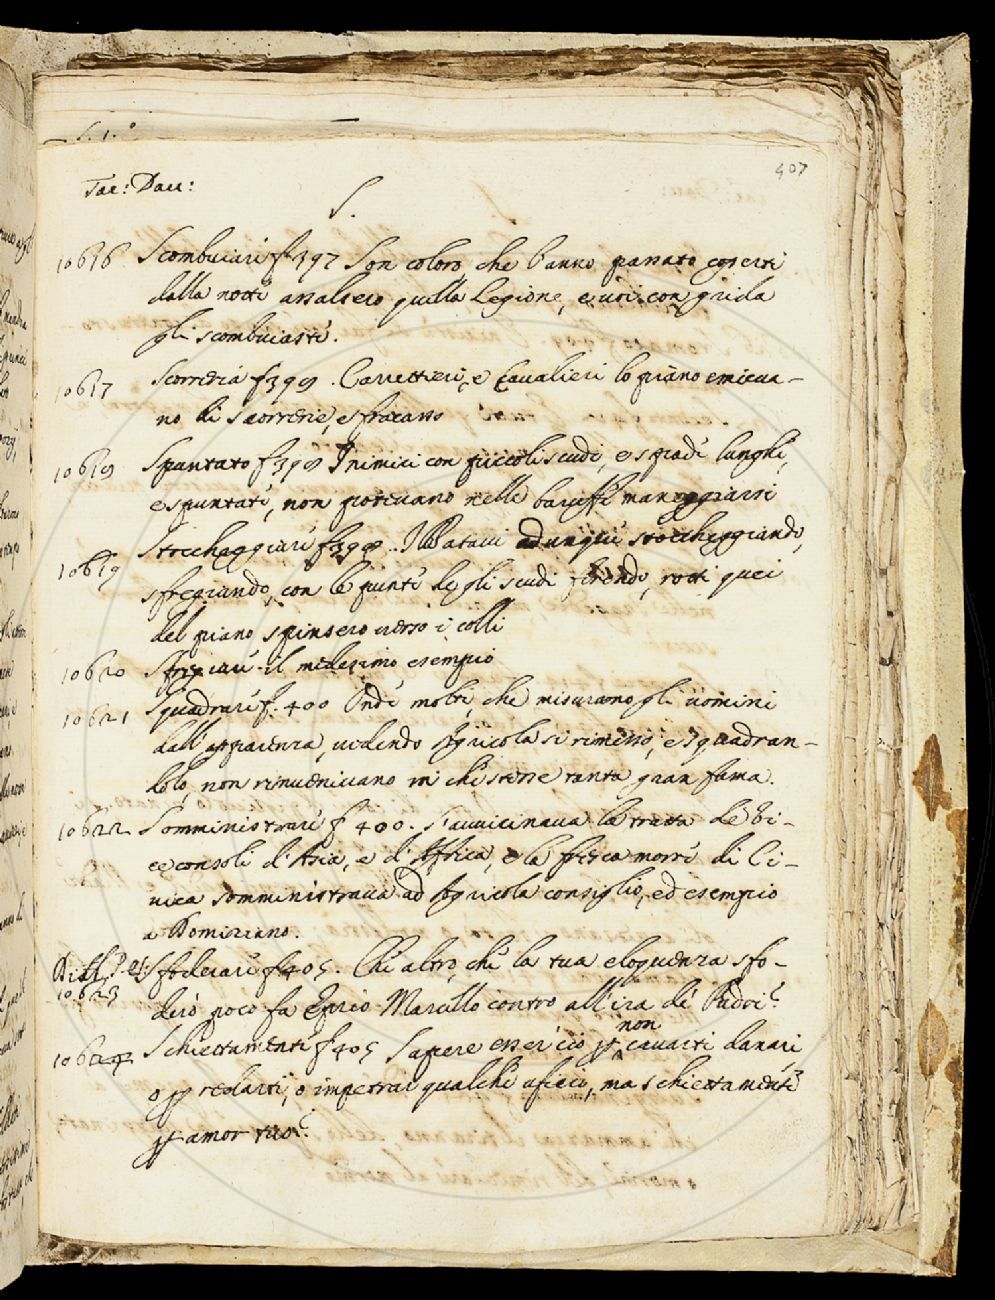 407
Tac: Dau:
S.
10616 Scombuiare f. 397 Son coloro, che l'anno passato coperti
dalla notte assalsero quella Legione, e voi con grida
gli scombuiaste.
10617 Scorreria f. 399. Carrettieri, e Cavalieri lo piano empieva-
no di scorrerie, e fracasso
10618 Spuntato f. 399 I nimici con piccoli scudi, e spade lunghe,
e spuntate, non potevano nelle baruffe maneggiarsi
10619 Stoccheggiare f. 399. I Batavi adunque stoccheggiando,
sfregiando, con le punte degli scudi ferendo, rotti quei
del piano spinsero verso i colli
10620 Sfregiare il medesimo esempio
10621 Squadrare f. 400 Onde molti, che misurano gli uomini
dall'apparenza, vedendo Agricola si rimesso, e squadran-
dolo, non rinvenivano in che stesse tanta gran fama.
10622 Somministrare f. 400. S'avvicinava la tratta de Vi-
ceconsoli d'Asia, e d'Affrica, e la fresca morte di Ci-
vica somministrava ad Agricola consiglio, ed esempio
a Domiziano.
10623 Sfoderare f. 405. Che altro, che la tua eloquenza sfo-
derò poco fa Eprio Marcello contro all'ira de' Padri?
10624 Schiettamente f. 405 Sapere esser ciò p non cavarti danari,
o p redarti, o impetrar qualche uficio, ma schiettamente
p amor tuo?